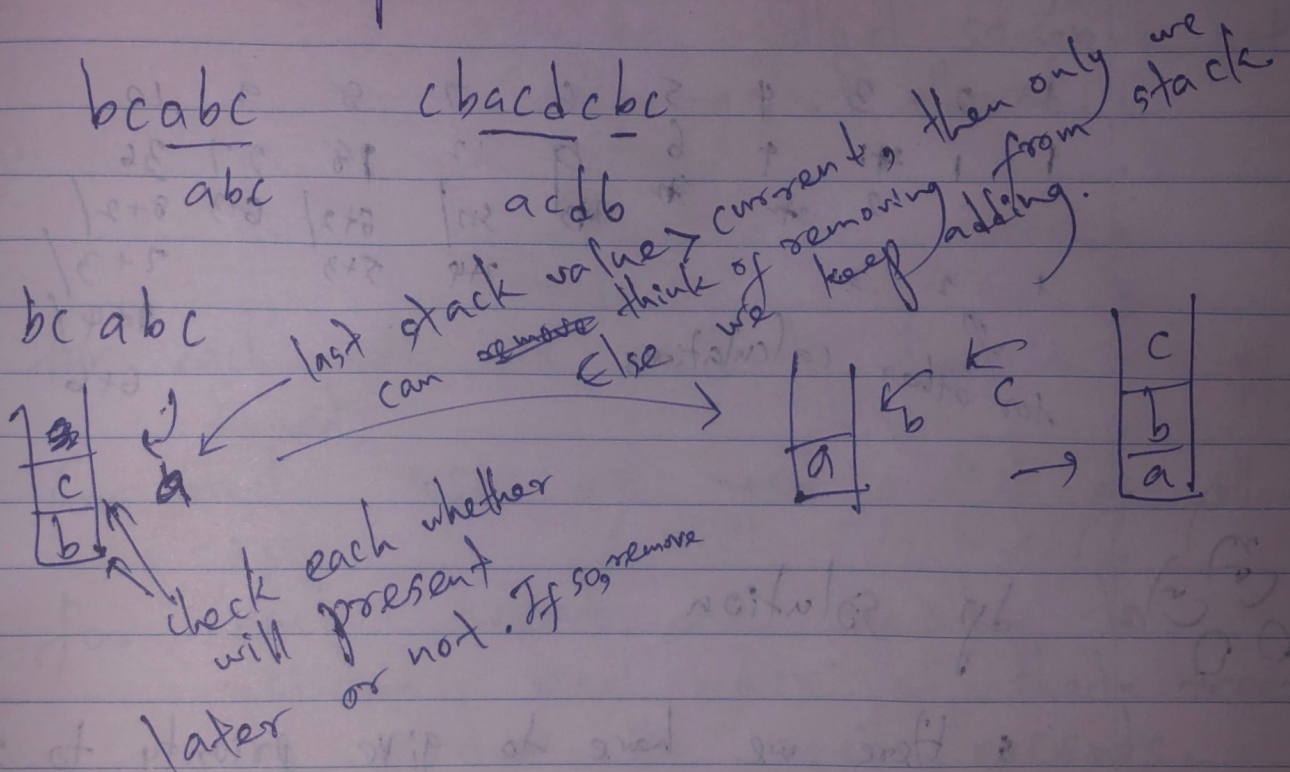 bcabc
cbacdcbc
abc
acdb
last stack value > current, then only we
can think of removing from stack
Else we keep adding.
bc abc
c
b
a
a
b
c
c
b
a
check each whether
will present
later or not. If so, remove
solution